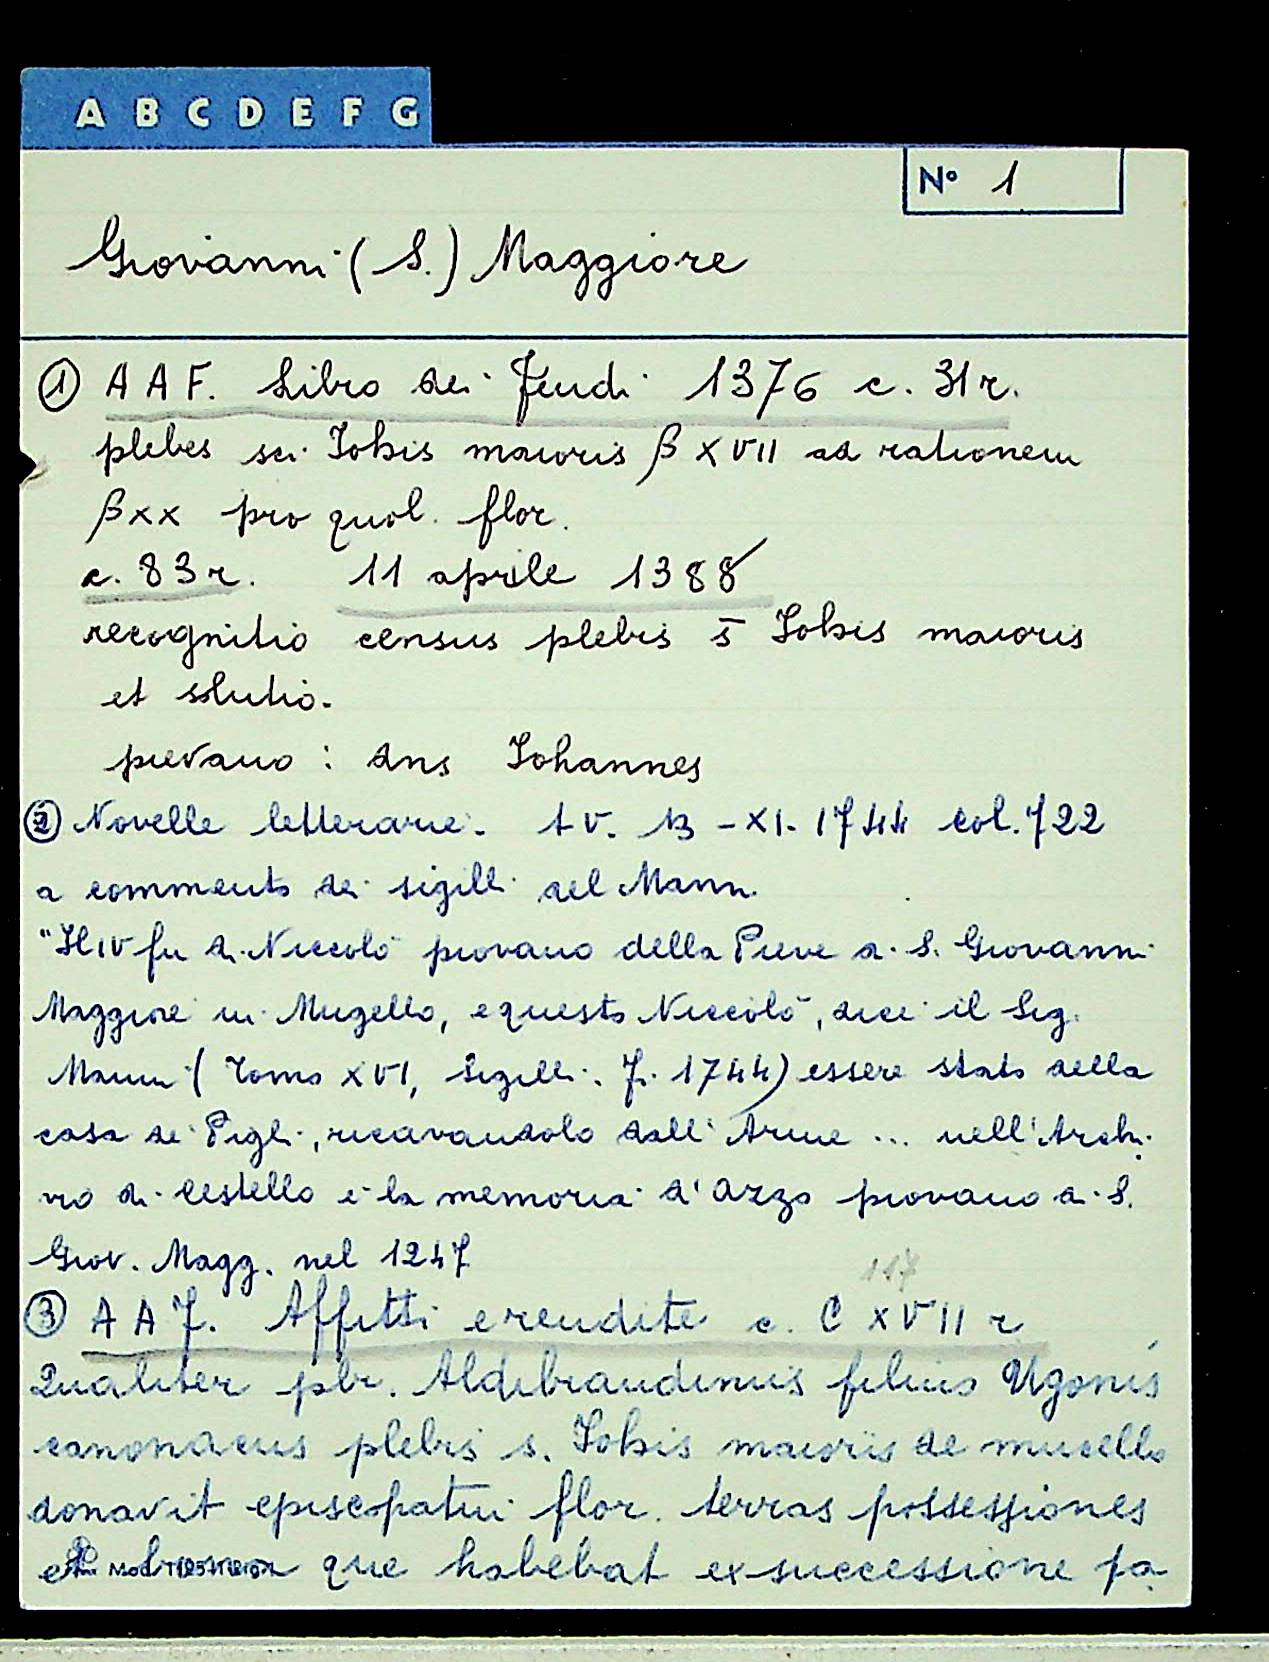 A B C D E F G
Nº 1
Giovanni (S.) Maggiore
① A A F. Libro dei Feudi 1376 c. 31r.
plebes sci Iohis maioris β XVII ad rationem
β xx pro quol. flor.
c. 83r. 11 aprile 1388
recognitio census plebis s̄ Iohis maioris
et solutio.
pievano: dns Iohannes
② Novelle letterarie. t V. 13-XI-1744 col. 722
a commento dei sigilli del Manni.
"Il IV fu di Niccolò piovano della Pieve a S. Giovanni
Maggiore in Mugello, e questo Niccolò, dice il Sig.
Manni (Tomo XVI, Sigilli. F. 1744) essere stato della
casa de' Pigli, ricavandolo dall'Arme ... nell'Archi
vio di Cestello è la memoria d'Azzo piovano a S.
Giov. Magg. nel 1247
117
③ A A F. Affitti e rendite c. C XVII r
Qualiter pbr. Aldibrandinus filius Ugonis
canonacus plebis s. Iohis maioris de mucello
donavit episcopatui flor. terras possessiones
et que habebat ex successione pa